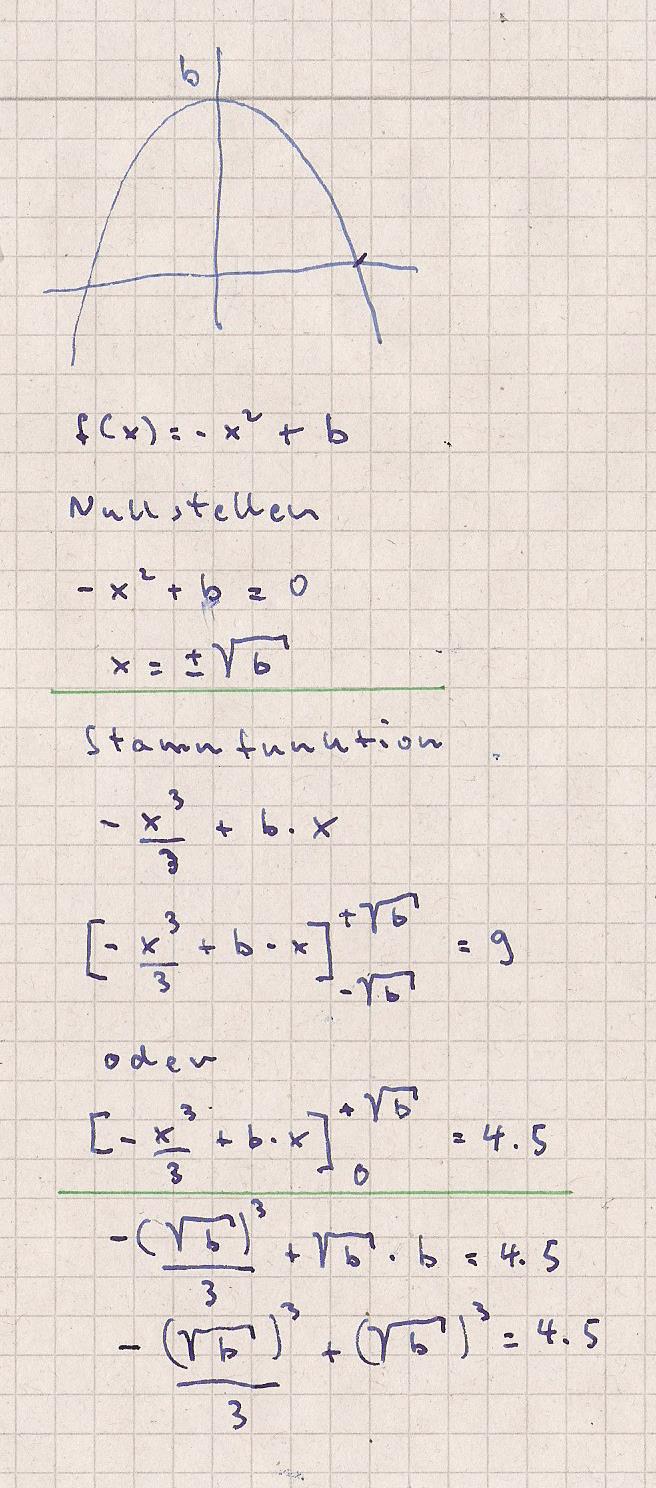 b
f(x) = - x² + b
Nullstellen
- x² + b = 0
x = ± √b
Stammfunktion
- x³/3 + b · x
[- x³/3 + b · x]₋√b⁺√b = 9
oder
[- x³/3 + b · x]₀⁺√b = 4.5
- (√b)³/3 + √b · b = 4.5
- (√b)³/3 + (√b)³ = 4.5